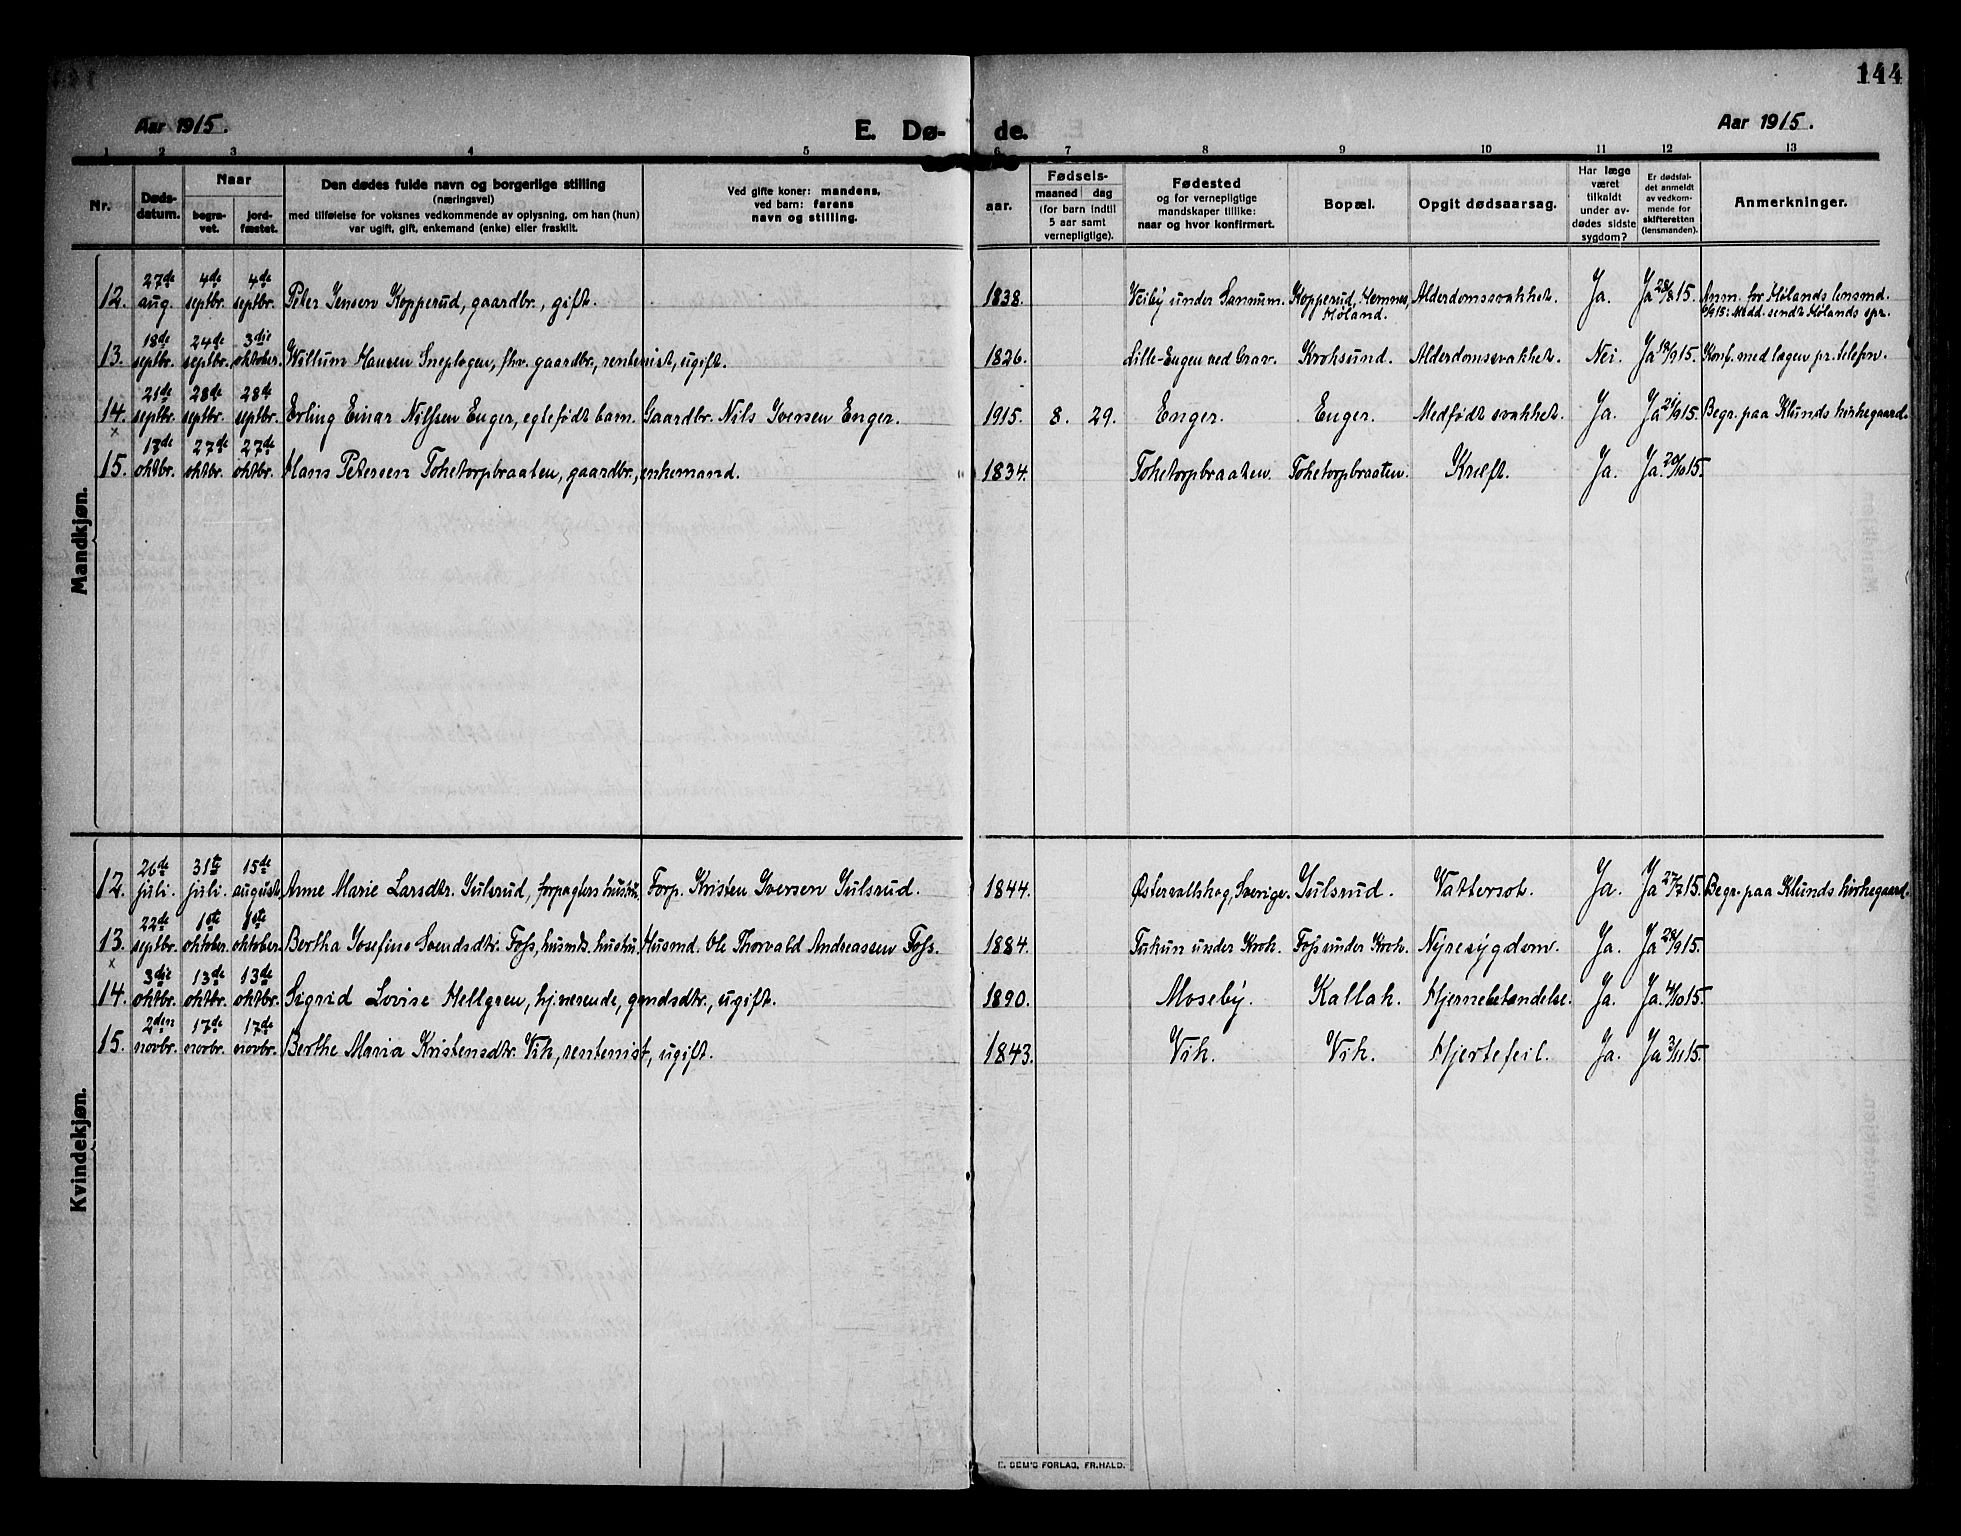 144
Aar 1915.
E. Dø- de.
Aar 1915.
1 2 3 4 5 6 7 8 9 10 11 12 13
Nr.
Døds-
datum.
Naar
begra-
vet.
jord-
fæstet.
Den dødes fulde navn og borgerlige stilling
(næringsvei)
med tilføielse for voksnes vedkommende av oplysning, om han (hun)
var ugift, gift, enkemand (enke) eller fraskilt.
Ved gifte koner: mandens,
ved barn: farens
navn og stilling.
Fødsels-
aar.
maaned dag
(for barn indtil
5 aar samt
vernepligtige).
Fødested
og for vernepligtige
mandskaper tillike:
naar og hvor konfirmert.
Bopæl.
Opgit dødsaarsag.
Har læge
været
tilkaldt
under av-
dødes sidste
sygdom?
Er dødsfal-
det anmeldt
av vedkom-
mende for
skifteretten
(lensmanden).
Anmerkninger.
Mandkjøn.
27de 4de 4de
12. aug. septbr. septbr. Peter Jensen Kopperud, gaardbr., gift. 1838. Veiby under Sannum. Kopperud, Hemnes, Alderdomssvakhet. Ja. Ja 28/8 15. Anm. for Hølands lensmd.
Høland. 6/9 15: Medd. sendt Hølands spr.
18de 24de 3die
13. septbr. septbr. oktober. Willum Hansen Sneplogen, fhv. gaardbr., rentenist, ugift. 1826. Lille-Engen ved Grav. Kroksund. Alderdomssvakhet. Nei. Ja 18/9 15. Konf. med lægen pr. telefon.
21de 28de 28de
14. septbr. septbr. septbr. Erling Einar Nilssen Enger, egtefødt barn. Gaardbr. Nils Iversen Enger. 1915. 8. 29. Enger. Enger. Medfødt svakhet. Ja. Ja 21/9 15. Begr. paa Klunds kirkegaard.
x 13de 27de 27de
15. oktbr. oktbr. oktbr. Hans Petersen Toketorpbraaten, gaardbr., enkemand. 1834. Toketorpbraaten. Toketorpbraaten. Kræft. Ja. Ja. 20/10 15.
Kvindekjøn.
26de 31te 15de
12. juli. juli. august. Anne Marie Larsdtr. Julsrud, forpagters hustru. Forp. Kristen Iversen Julsrud. 1844. Østervallskog, Sverige. Julsrud. Vattersot. Ja. Ja 27/7 15. Begr. paa Klunds kirkegaard.
22de 1ste 1ste
13. septbr. oktober. oktober. Bertha Josefine Svendsdtr. Foss, husmds. hustru. Husmd. Ole Thorvald Andreassen Foss. 1884. under Krok. Foss under Krok. Nyresygdom. Ja. Ja 28/9 15.
x 3die 13de 13de
14. oktbr. oktbr. oktbr. Sigrid Lovise Hellgren, hjnesende, grndsdtr., ugift. 1890. Moseby. Kallak. Hjernebetændelse. Ja. Ja. 4/10 15.
2den 17de 17de
15. novbr. novbr. novbr. Berthe Maria Kristensdtr. Vik, rentenist, ugift. 1843. Vik. Vik. Hjertefeil. Ja. Ja 3/11 15.
E. SEM'S FORLAG, FR.HALD.